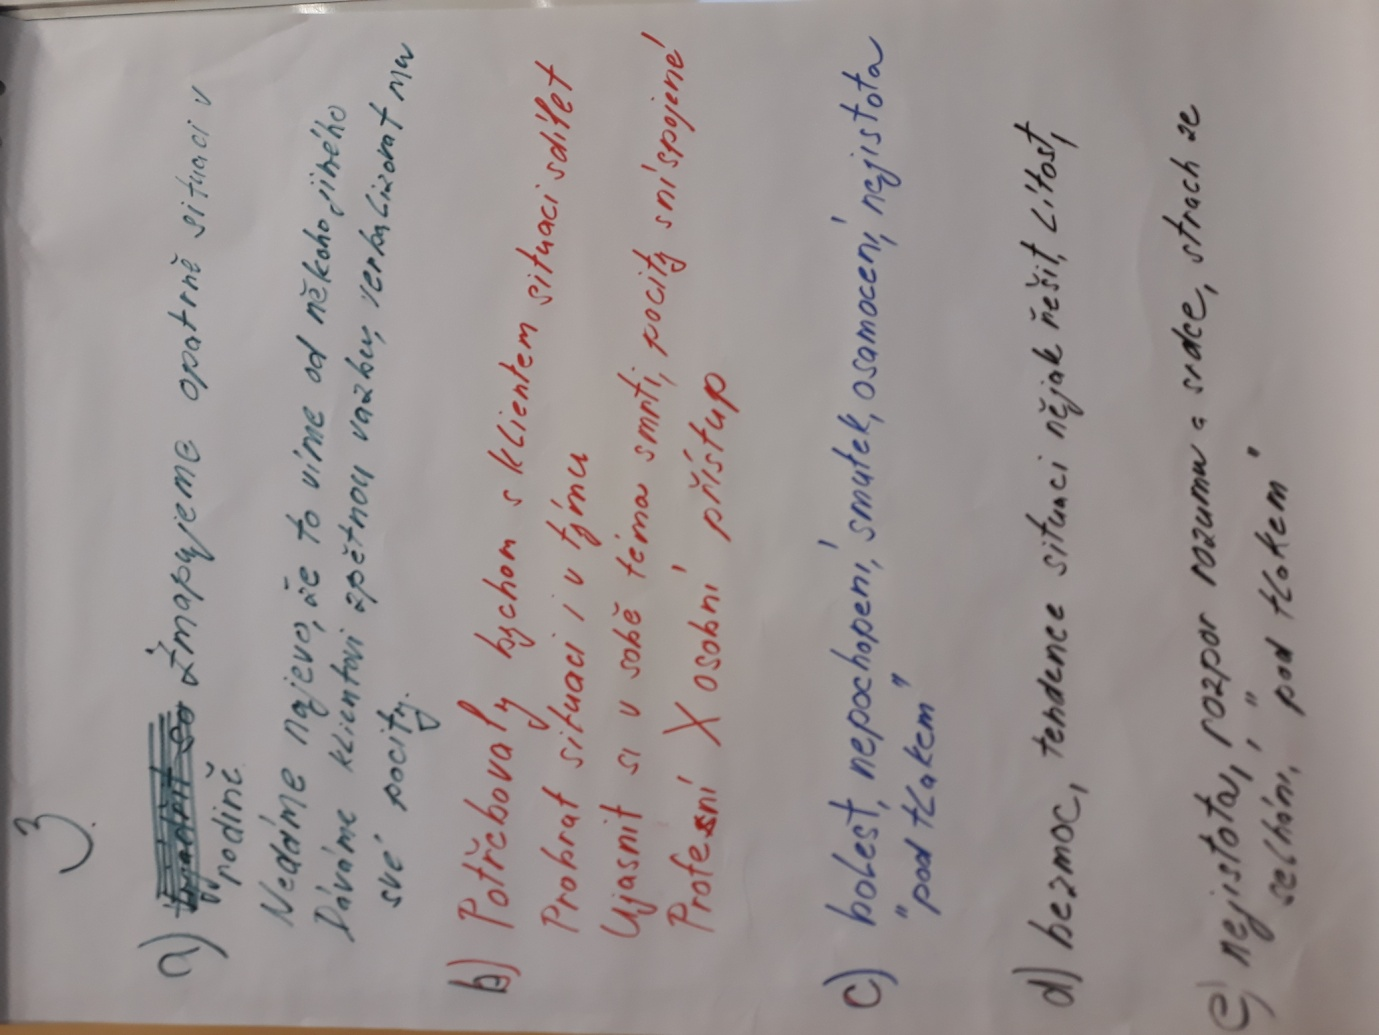 3.
a) Zmapujeme opatrně situaci v
rodině
Nedáme najevo, že to víme od někoho jiného
Dáváme klientovi zpětnou vazbu, verbalizovat mu
své pocity.
b) Potřebovaly bychom s klientem situaci sdílet
Probrat situaci i v týmu
Ujasnit si v sobě téma smrti, pocity s ní spojené
Profesní X osobní přístup
c) bolest, nepochopení, smutek, osamocení, nejistota
"pod tlakem"
d) bezmoc, tendence situaci nějak řešit, lítost,
e) nejistota, rozpor rozumu a srdce, strach ze
selhání, "pod tlakem"